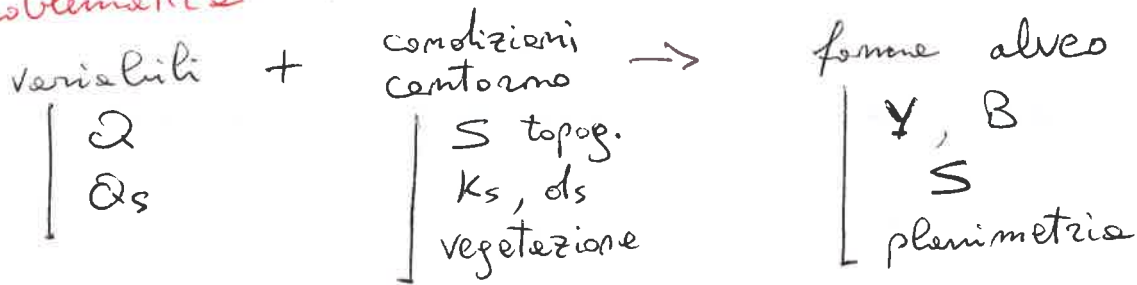 variabili + condizioni contorno → forme alveo
Q
Qs
S topog.
Ks, ds
vegetazione
Y, B
S
planimetria